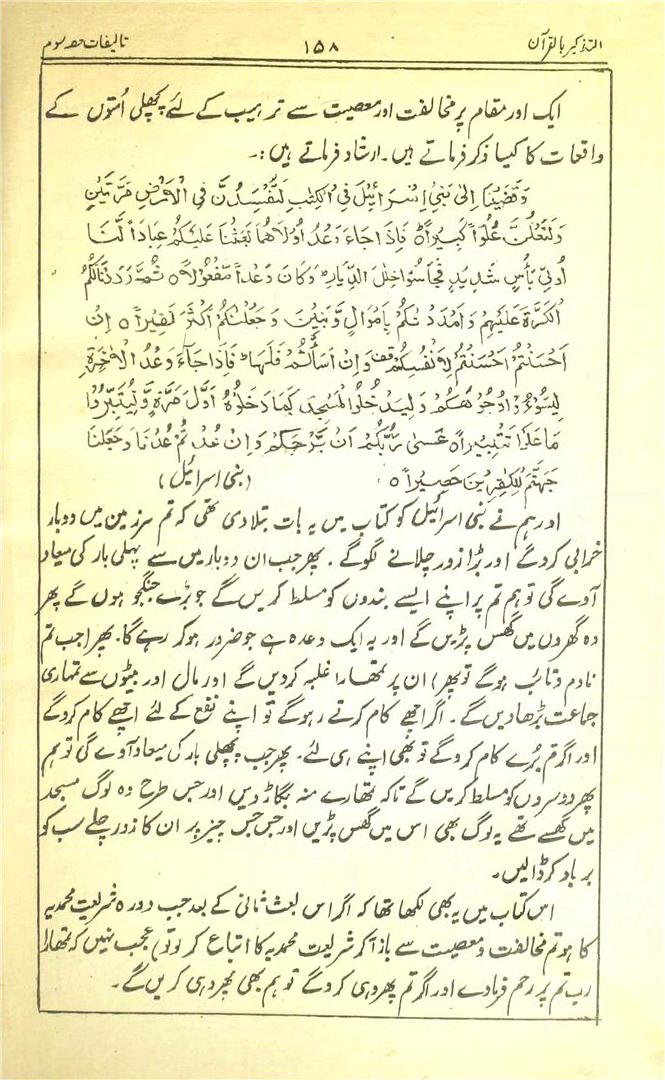 التذکیر بالقرآن ۱۵۸ تالیفات حصہ سوم
ایک اور مقام پر مخالفت اور معصیت سے ترہیب کے لئے پچھلی اُمتوں کے
واقعات کا کیسا ذکر فرماتے ہیں۔ ارشاد فرماتے ہیں :۔
وَقَضَيْنَا اِلٰى بَنِيْ اِسْرَآئِيْلَ فِي الْكِتٰبِ لَتُفْسِدُنَّ فِي الْاَرْضِ مَرَّتَيْنِ
وَلَتَعْلُنَّ عُلُوًّا كَبِيْرًا ه فَاِذَا جَآءَ وَعْدُ اُوْلٰهُمَا بَعَثْنَا عَلَيْكُمْ عِبَادًا لَّنَا
اُولِيْ بَأْسٍ شَدِيْدٍ فَجَاسُوْا خِلٰلَ الدِّيَارِ ؕ وَكَانَ وَعْدًا مَّفْعُوْلًا ه ثُمَّ رَدَدْنَا لَكُمُ
الْكَرَّةَ عَلَيْهِمْ وَاَمْدَدْنٰكُمْ بِاَمْوَالٍ وَّبَنِيْنَ وَجَعَلْنٰكُمْ اَكْثَرَ نَفِيْرًا ه اِنْ
اَحْسَنْتُمْ اَحْسَنْتُمْ لِاَنْفُسِكُمْ قف وَاِنْ اَسَأْتُمْ فَلَهَا ؕ فَاِذَا جَآءَ وَعْدُ الْاٰخِرَةِ
لِيَسُوْٓءٗا وُجُوْهَكُمْ وَلِيَدْخُلُوا الْمَسْجِدَ كَمَا دَخَلُوْهُ اَوَّلَ مَرَّةٍ وَّلِيُتَبِّرُوْا
مَا عَلَوْا تَتْبِيْرًا ه عَسٰى رَبُّكُمْ اَنْ يَّرْحَمَكُمْ وَاِنْ عُدْتُّمْ عُدْنَا وَجَعَلْنَا
جَهَنَّمَ لِلْكٰفِرِيْنَ حَصِيْرًا ه (بنی اسرائیل)
اور ہم نے بنی اسرائیل کو کتاب میں یہ بات بتلا دی تھی کہ تم سرزمین میں دوبار
خرابی کروگے اور بڑا زور چلانے لگوگے۔ پھر جب ان دوبار میں سے پہلی بار کی میعاد
آوے گی تو ہم تم پر اپنے ایسے بندوں کو مسلط کریں گے جو بڑے جنگجو ہوں گے پھر
وہ گھروں میں گھس پڑیں گے اور یہ ایک وعدہ ہے جو ضرور ہو کر رہے گا۔ پھر (جب تم
نادم و تائب ہوگے تو پھر) ان پر تمھارا غلبہ کردیں گے اور مال اور بیٹوں سے تمہاری
جماعت بڑھا دیں گے۔ اگر اچھے کام کرتے رہوگے تو اپنے نفع کے لئے اچھے کام کروگے
اور اگر تم بُرے کام کروگے تو بھی اپنے ہی لئے۔ پھر جب پچھلی بار کی میعاد آوے گی تو ہم
پھر دوسروں کو مسلط کریں گے تاکہ تمھارے منہ بگاڑ دیں اور جس طرح وہ لوگ مسجد
میں گھسے تھے یہ لوگ بھی اس میں گھس پڑیں اور جس جس چیز پر ان کا زور چلے سب کو
برباد کر ڈالیں۔
اس کتاب میں یہ بھی لکھا تھا کہ اگر اس بعث ثانی کے بعد جب دورہ شریعت محمدیہ
کا ہو تم مخالفت و معصیت سے باز آ کر شریعت محمدیہ کا اتباع کر لو تو) عجب نہیں کہ تمھارا
رب تم پر رحم فرمادے اور اگر تم پھر وہی کروگے تو ہم بھی پھر وہی کریں گے۔